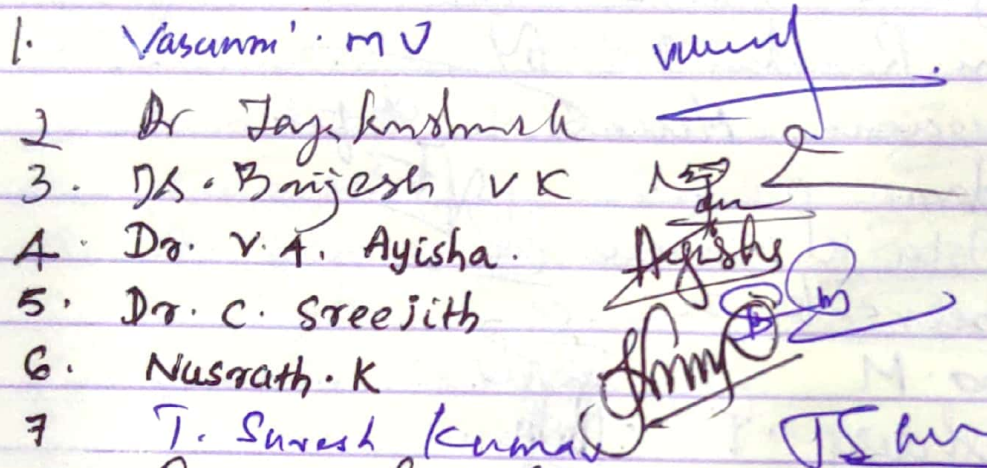 1. Vasanthi . M V
2 Dr Jayakrishnan
3. Dr. Brijesh V K
4. Dr. V. A. Ayisha. Ayisha
5. Dr. C. Sreejith
6. Nusrath. K
7 T. Suresh Kumar